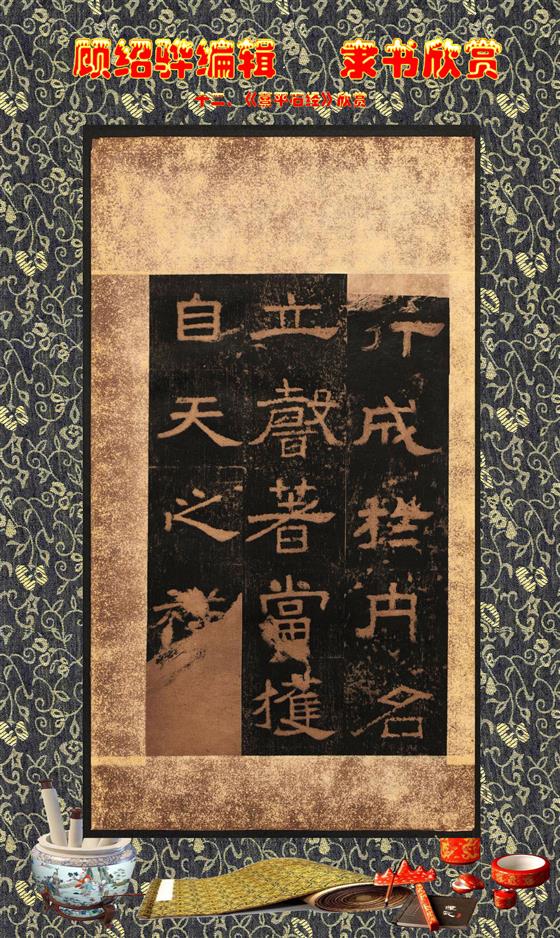 顾绍骅编辑 隶书欣赏
十二、《熹平石经》欣赏
行成扵内名
立聲著當獲
自天之祥